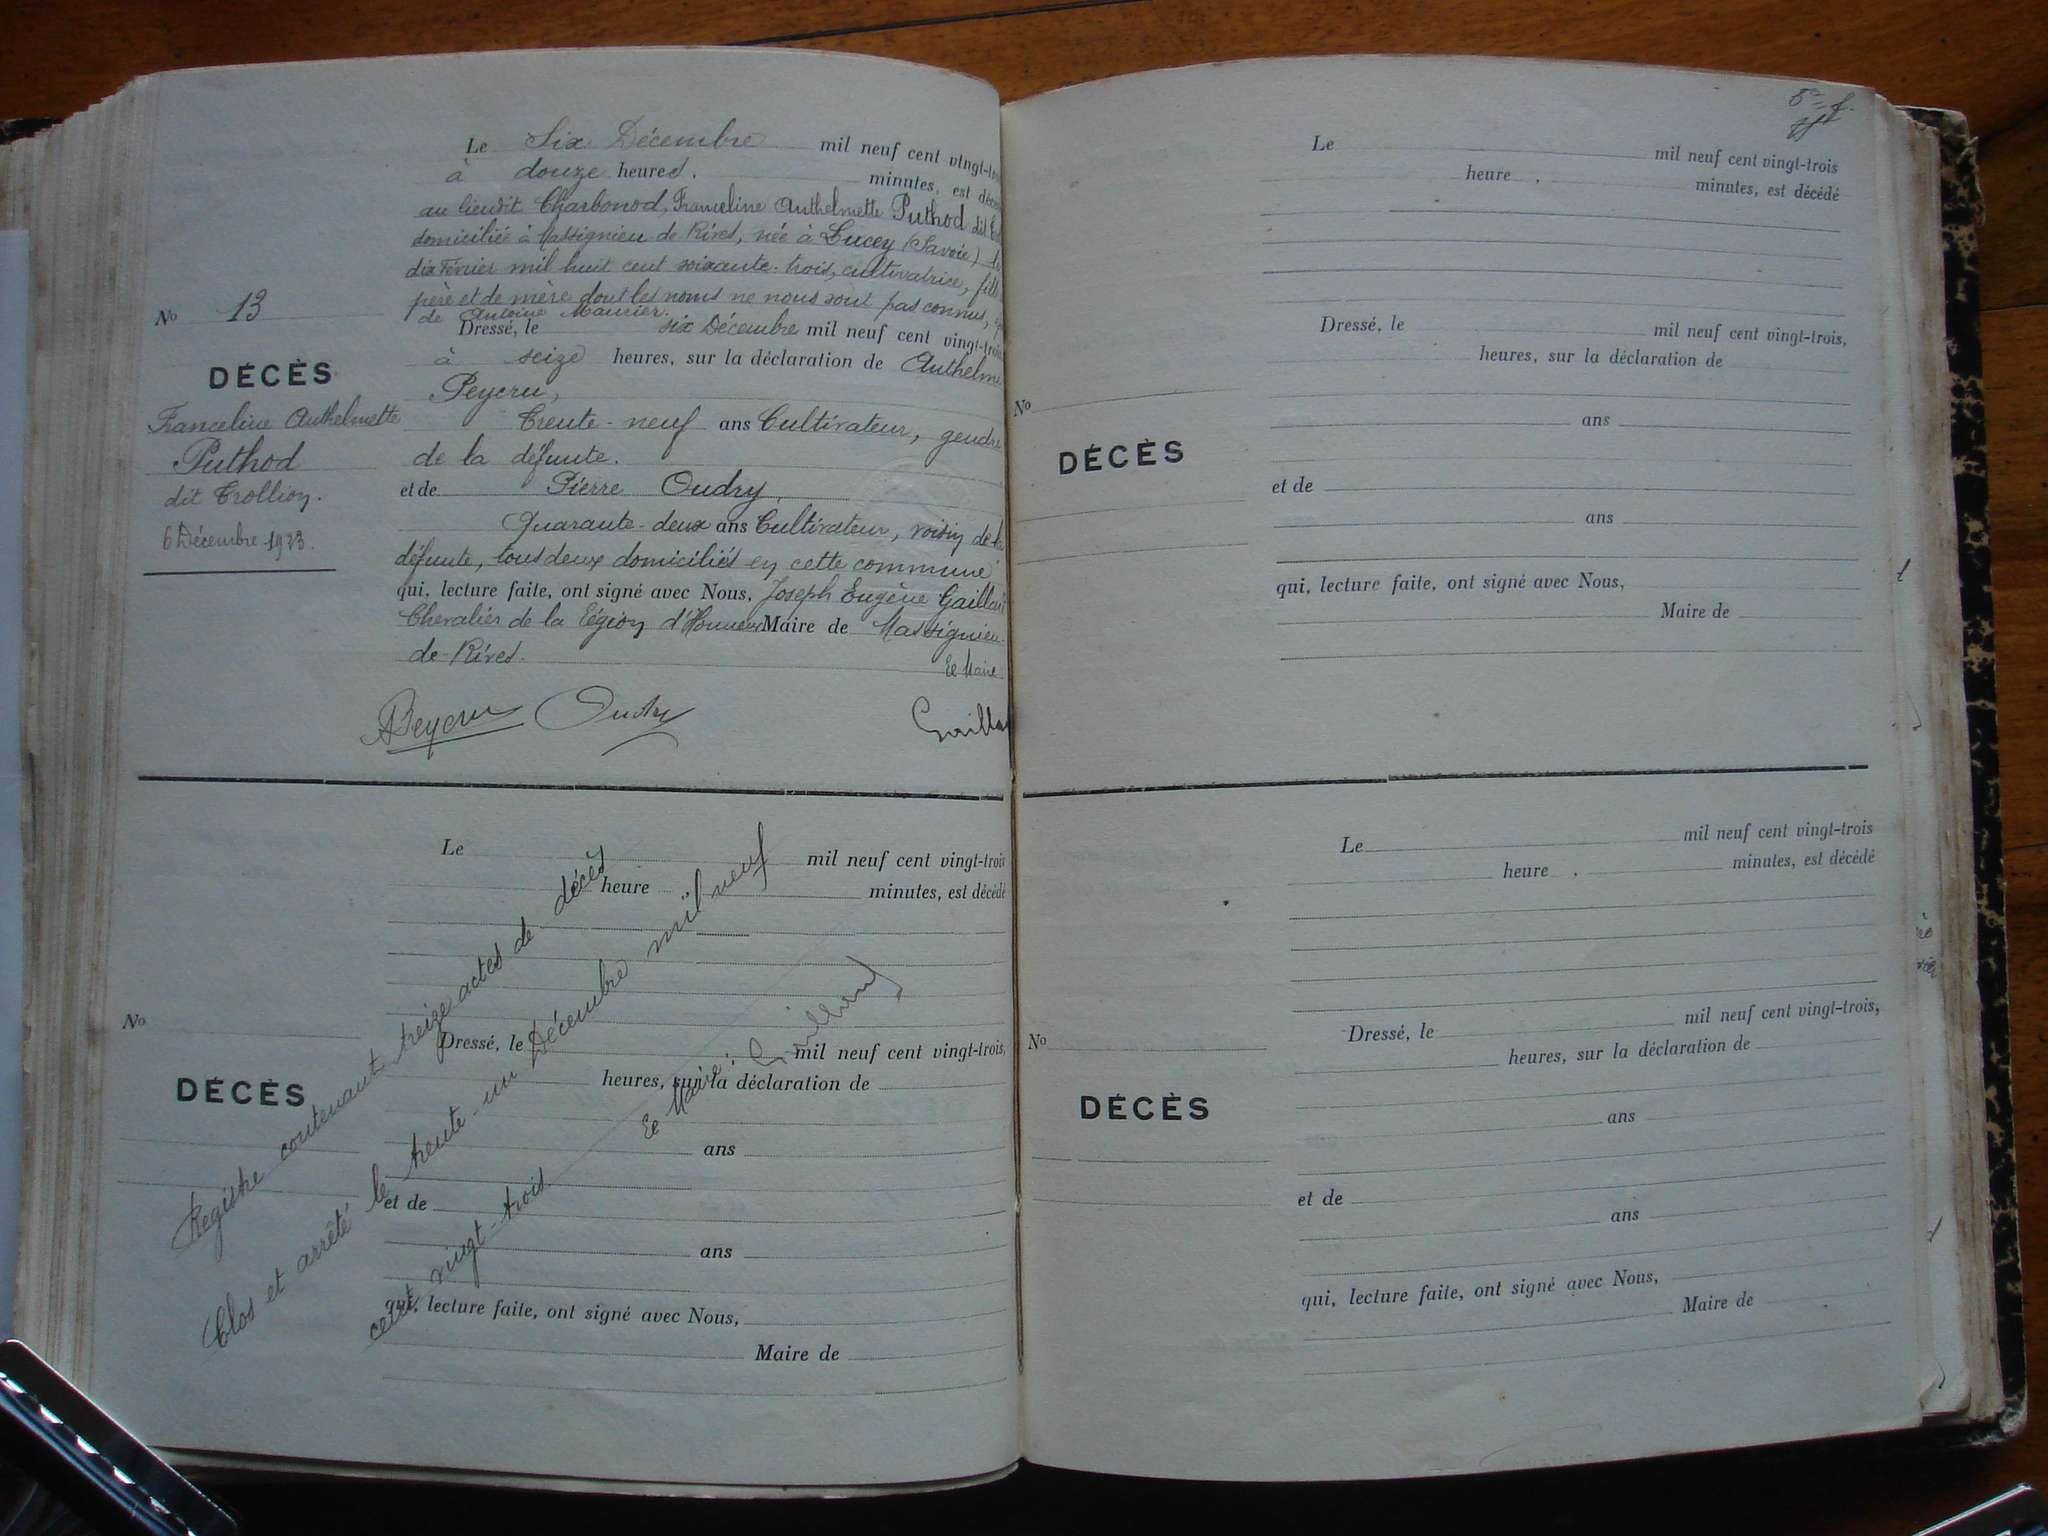 Le Six Décembre mil neuf cent vingt-trois
à douze heures. minutes, est décédé
au lieudit Charbonod, Franceline Anthelmette Puthod dit
domiciliée à Massignieu de Rives, née à Lucey (Savoie) le
dix Février mil huit cent soixante-trois, cultivatrice, fille
père et de mère dont les noms ne nous sont pas connus,
de Antoine Maurier.
No 13
DÉCÈS
Franceline Anthelmette
Puthod
dit Trollion.
6 Décembre 1923.
Dressé, le six Décembre mil neuf cent vingt-trois
à seize heures, sur la déclaration de Anthelme
Peycru,
Trente-neuf ans Cultivateur, gendre
de la défunte.
et de Pierre Oudry,
Quarante-deux ans Cultivateur, voisin de la
défunte, tous deux domiciliés en cette commune
qui, lecture faite, ont signé avec Nous, Joseph Eugène Gaillard
Chevalier de la Légion d'Honneur Maire de Massignieu
de-Rives.
Le Maire
APeycru Oudry Gaillar
Le mil neuf cent vingt-trois
heure minutes, est décédé
No
DÉCÈS
Dressé, le mil neuf cent vingt-trois,
heures, sur la déclaration de
ans
et de
ans
qui, lecture faite, ont signé avec Nous,
Maire de
Registre contenant treize actes de décès
Clos et arrêté le trente-un Décembre mil neuf
cent vingt-trois
Le Maire: Gaillard
Le mil neuf cent vingt-trois
heure . minutes, est décédé
Dressé, le mil neuf cent vingt-trois,
heures, sur la déclaration de
No
DÉCÈS
ans
et de
ans
qui, lecture faite, ont signé avec Nous,
Maire de
Le mil neuf cent vingt-trois
heure . minutes, est décédé
Dressé, le mil neuf cent vingt-trois,
No
heures, sur la déclaration de
DÉCÈS
ans
et de
ans
qui, lecture faite, ont signé avec Nous,
Maire de